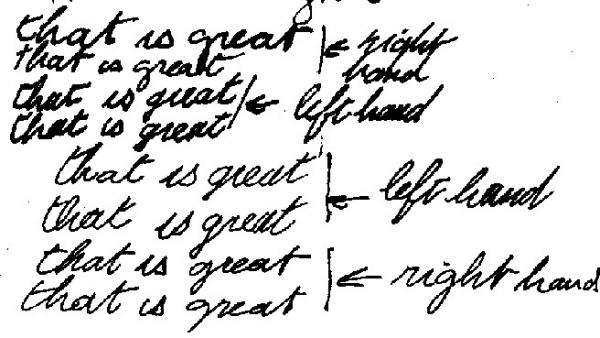 that is great ← right
that is great hand
that is great ← left hand
that is great
that is great ← left hand
that is great
that is great ← right hand
that is great